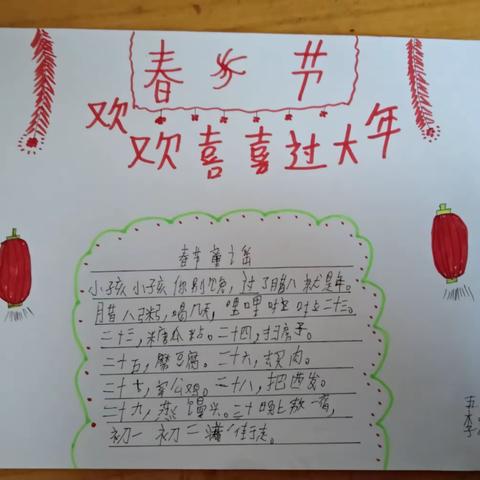 春节
欢欢喜喜过大年
春节童谣
小孩小孩你别馋,过了腊八就是年。
腊八粥,喝几天,哩哩啦啦二十三。
二十三,糖瓜粘。二十四,扫房子。
二十五,磨豆腐。二十六,去买肉。
二十七,宰公鸡。二十八,把面发。
二十九,蒸馒头。三十晚上熬一宿,
初一初二满街走。